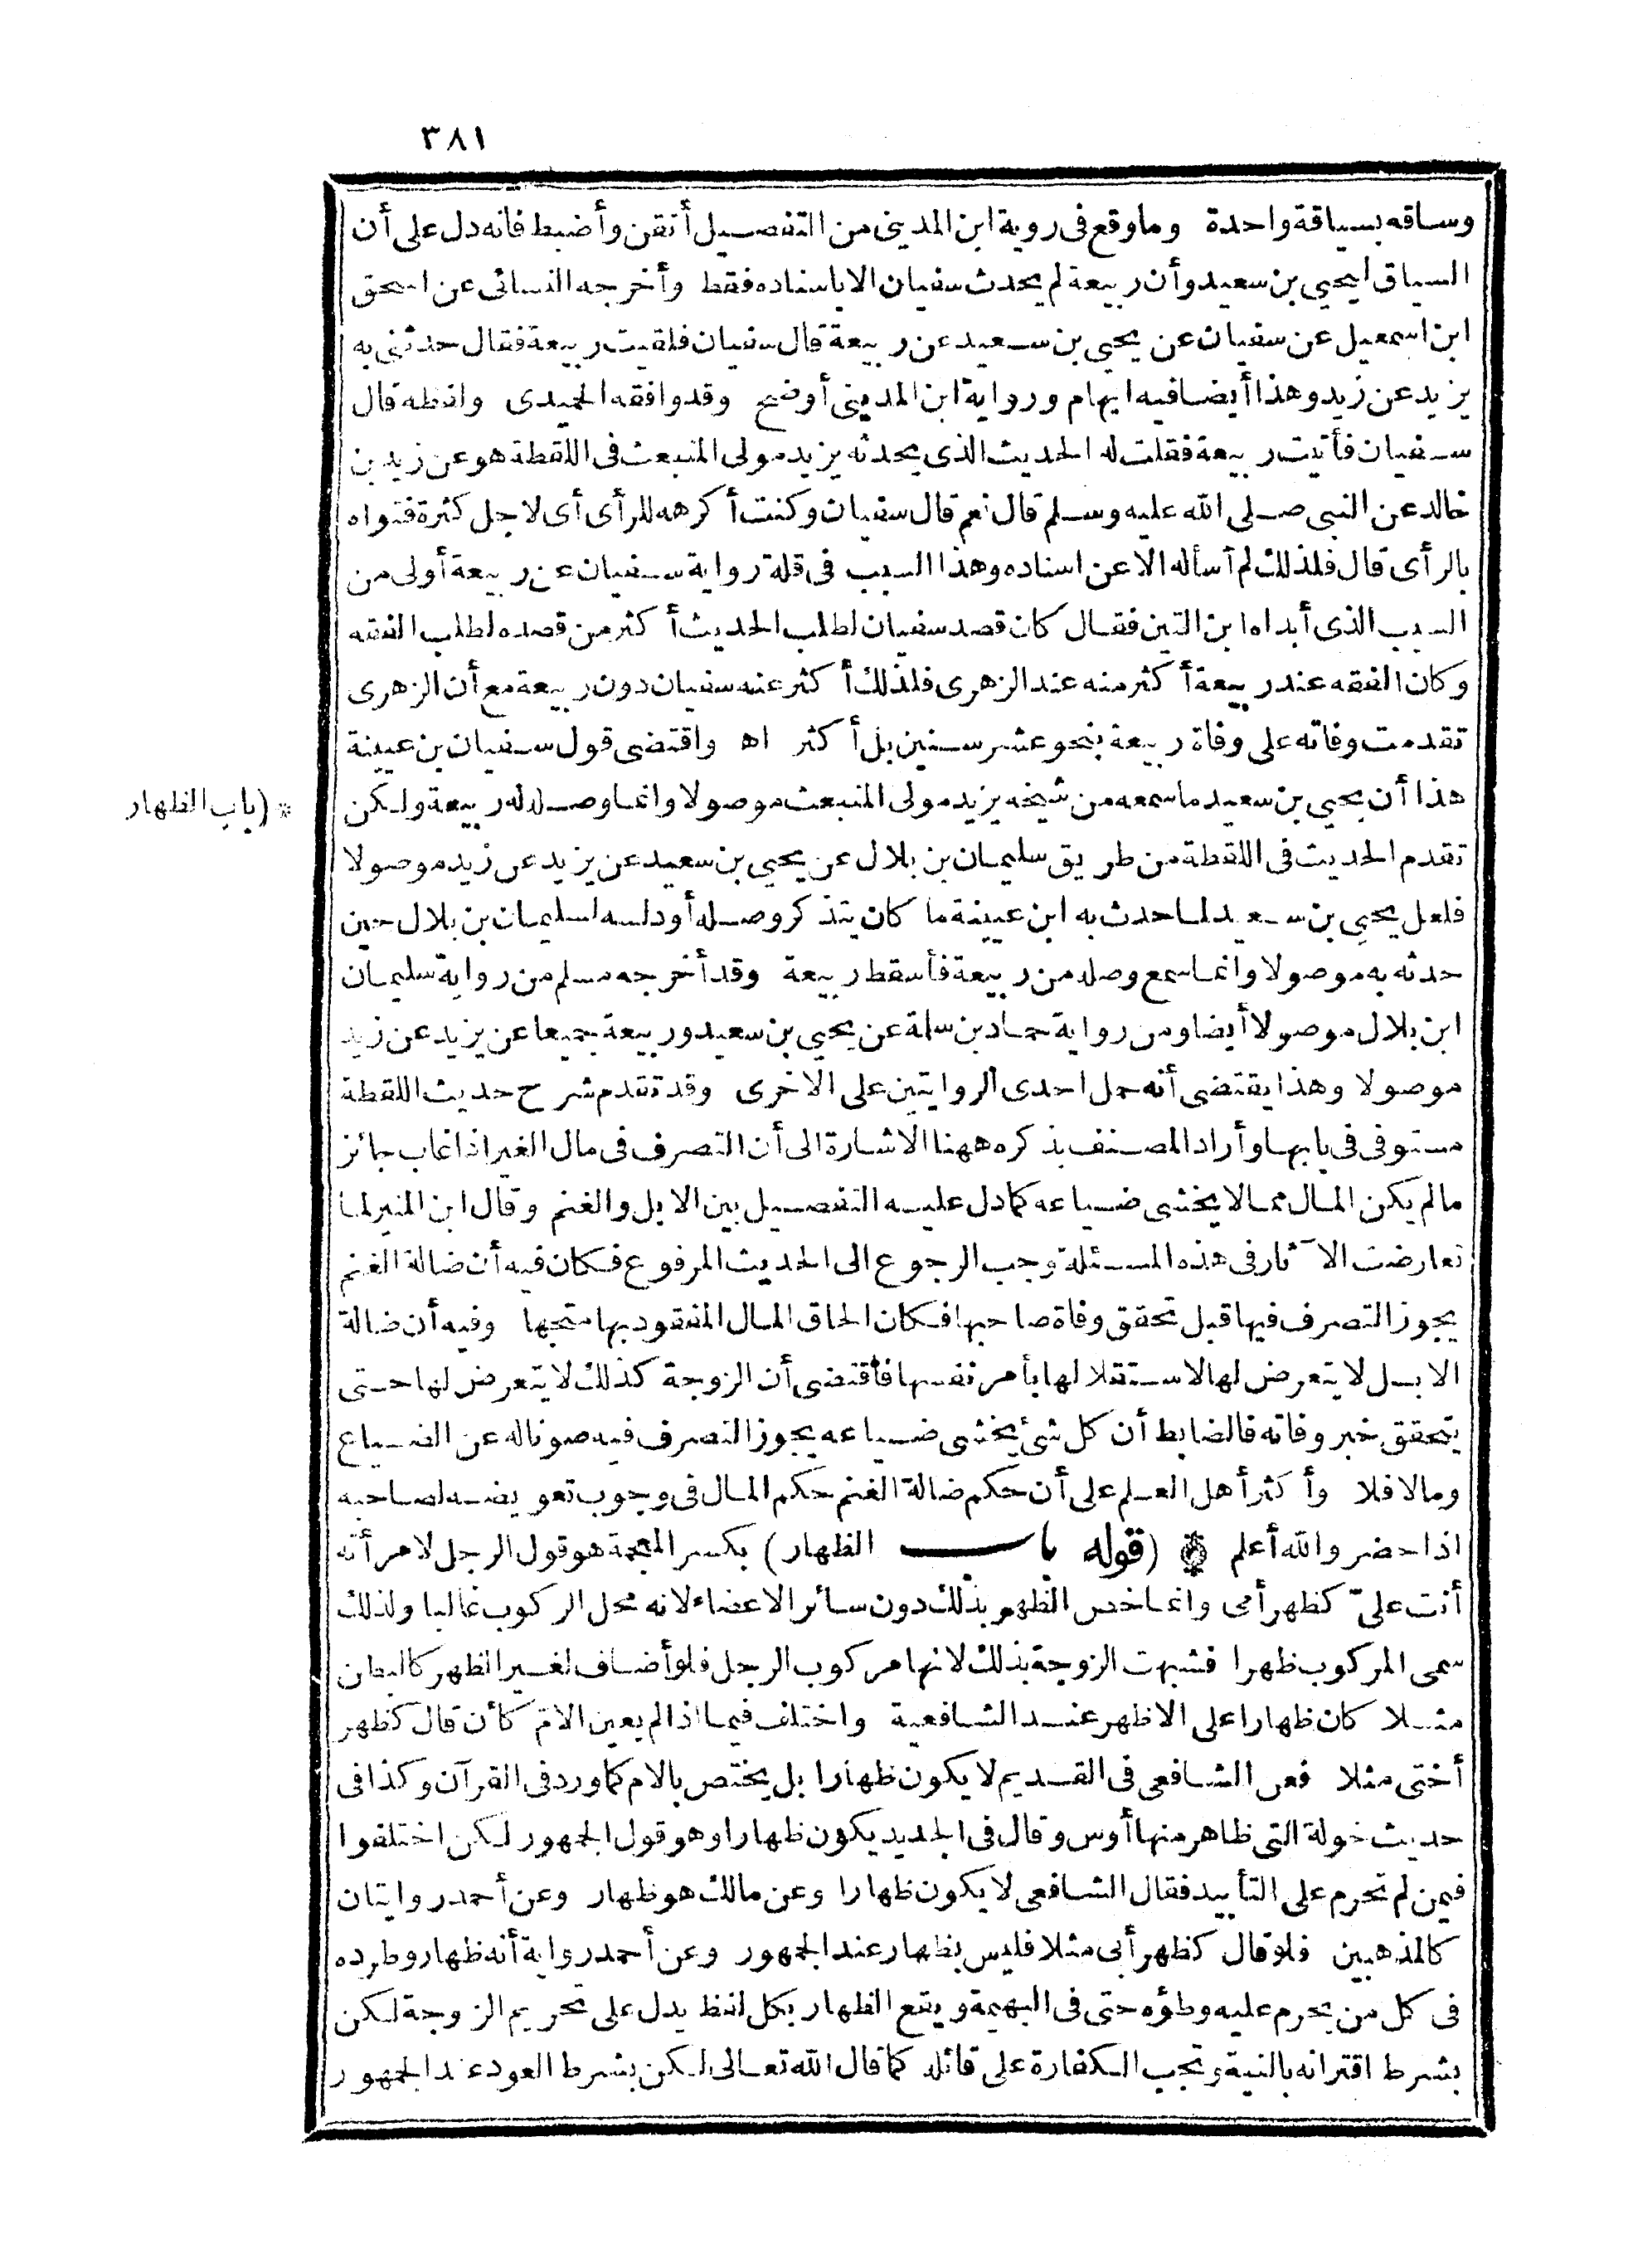 ٣٨١
وساقه بسياقة واحدة وما وقع في روية ابن المديني من التفصيل أتقن وأضبط فانه دل على أن
السياق ليحيى بن سعيد وأن ربيعة لم يحدث سفيان الا باسناده فقط وأخرجه النسائى عن اسحق
ابن اسمعيل عن سفيان عن يحيى بن سعيد عن ربيعة قال سفيان فلقيت ربيعة فقال حدثني به
يزيد عن زيد وهذا أيضا فيه ايهام ورواية ابن المديني أوضح وقد وافقه الحميدى ولفظه قال
سفيان فأتيت ربيعة فقلت له الحديث الذى يحدثه يزيد مولى المنبعث فى اللقطة هو عن زيد بن
خالد عن النبى صلى الله عليه وسلم قال نعم قال سفيان وكنت أكرهه للرأى أى لاجل كثرة فتواه
بالرأى قال فلذلك لم أسأله الا عن اسناده وهذا السبب فى قلة رواية سفيان عن ربيعة أولى من
السبب الذى أبداه ابن التين فقال كان قصد سفيان لطلب الحديث أكثر من قصده لطلب الفقه
وكان الفقه عند ربيعة أكثر منه عند الزهرى فلذلك أكثر عنه سفيان دون ربيعة مع أن الزهرى
تقدمت وفاته على وفاة ربيعة بنحو عشر سنين بل أكثر اه واقتضى قول سفيان بن عيينة
هذا أن يحيى بن سعيد ما سمعه من شيخه يزيد مولى المنبعث موصولا وانما وصله له ربيعة ولكن
* (باب الظهار
تقدم الحديث فى اللقطة من طريق سليمان بن بلال عن يحيى بن سعيد عن يزيد عن زيد موصولا
فلعل يحيى بن سعيد لما حدث به ابن عيينة ما كان يتذكر وصله أو دلسه لسليمان بن بلال حين
حدثه به موصولا وانما سمع وصله من ربيعة فأسقط ربيعة وقد أخرجه مسلم من رواية سليمان
ابن بلال موصولا أيضا ومن رواية حماد بن سلمة عن يحيى بن سعيد وربيعة جميعا عن يزيد عن زيد
موصولا وهذا يقتضى أنه حمل احدى الروايتين على الاخرى وقد تقدم شرح حديث اللقطة
مستوفى فى بابها وأراد المصنف بذكره ههنا الاشارة الى أن التصرف فى مال الغير اذا غاب جائز
ما لم يكن المال مما لا يخشى ضياعه كما دل عليه التفصيل بين الابل والغنم وقال ابن المنير لما
تعارضت الآثار فى هذه المسئلة وجب الرجوع الى الحديث المرفوع فكان فيه أن ضالة الغنم
يجوز التصرف فيها قبل تحقق وفاة صاحبها فكان الحاق المال المفقود بها متجها وفيه أن ضالة
الابل لا يتعرض لها لاستقلالها بأمر نفسها فاقتضى أن الزوجة كذلك لا يتعرض لها حتى
يتحقق خبر وفاته فالضابط أن كل شئ يخشى ضياعه يجوز التصرف فيه صونا له عن الضياع
وما لا فلا وأكثر أهل العلم على أن حكم ضالة الغنم حكم المال فى وجوب تعويضه لصاحبه
اذا حضر والله أعلم * (قوله باب الظهار) بكسر المعجمة هو قول الرجل لامرأته
أنت علىّ كظهر أمى وانما خص الظهر بذلك دون سائر الاعضاء لانه محل الركوب غالبا ولذلك
سمى المركوب ظهرا فشبهت الزوجة بذلك لانها مركوب الرجل فلو أضاف لغير الظهر كالبطن
مثلا كان ظهارا على الاظهر عند الشافعية واختلف فيما اذا لم يعين الامّ كأن قال كظهر
أختى مثلا فعن الشافعى فى القديم لا يكون ظهارا بل يختص بالام كما ورد فى القرآن وكذا فى
حديث خولة التى ظاهر منها أوس وقال فى الجديد يكون ظهارا وهو قول الجمهور لكن اختلفوا
فيمن لم تحرم على التأبيد فقال الشافعى لا يكون ظهارا وعن مالك هو ظهار وعن أحمد روايتان
كالمذهبين فلو قال كظهر أبى مثلا فليس بظهار عند الجمهور وعن أحمد رواية أنه ظهار وطرده
فى كل من يحرم عليه وطؤه حتى فى البهيمة ويقع الظهار بكل لفظ يدل على تحريم الزوجة لكن
بشرط اقترانه بالنية وتجب الكفارة على قائله كما قال الله تعالى لكن بشرط العود عند الجمهور